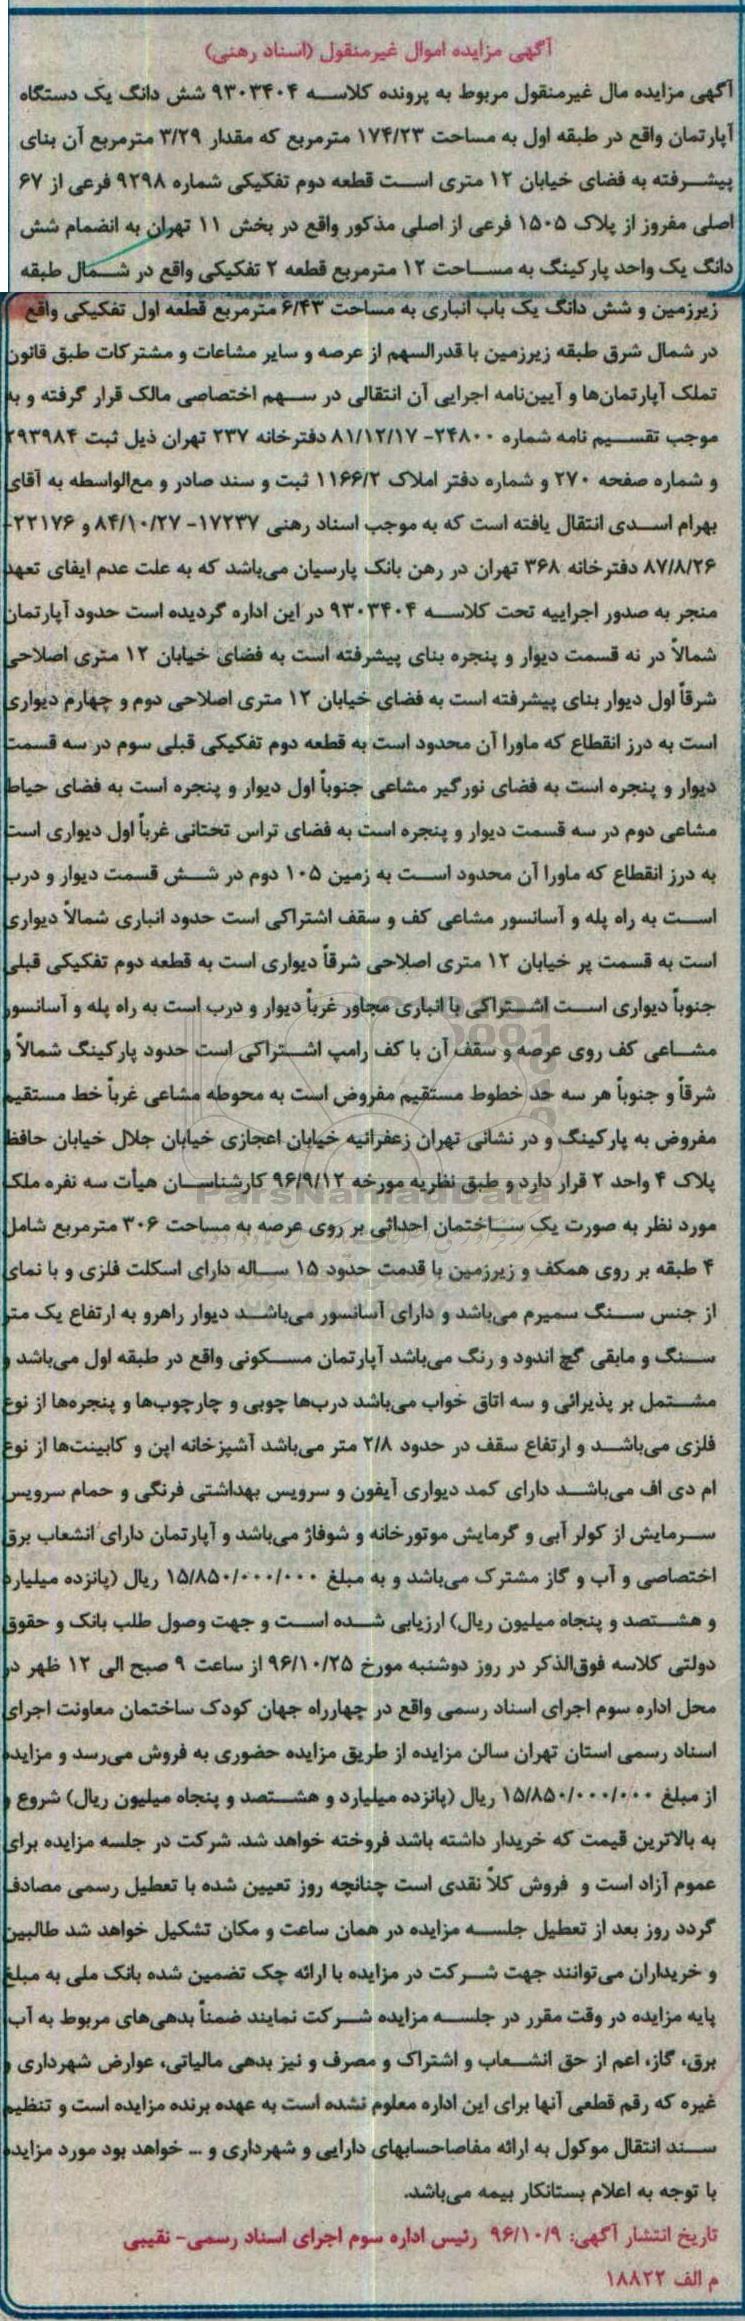 آگهی مزایده اموال غیرمنقول (اسناد رهنی)
آگهی مزایده مال غیرمنقول مربوط به پرونده کلاسه ۹۳۰۳۴۰۴ شش دانگ یک دستگاه
آپارتمان واقع در طبقه اول به مساحت ۱۷۴/۲۳ مترمربع که مقدار ۳/۲۹ مترمربع آن بنای
پیشرفته به فضای خیابان ۱۲ متری است قطعه دوم تفکیکی شماره ۹۲۹۸ فرعی از ۶۷
اصلی مفروز از پلاک ۱۵۰۵ فرعی از اصلی مذکور واقع در بخش ۱۱ تهران به انضمام شش
دانگ یک واحد پارکینگ به مساحت ۱۲ مترمربع قطعه ۲ تفکیکی واقع در شمال طبقه
زیرزمین و شش دانگ یک باب انباری به مساحت ۶/۴۳ مترمربع قطعه اول تفکیکی واقع
در شمال شرق طبقه زیرزمین با قدرالسهم از عرصه و سایر مشاعات و مشترکات طبق قانون
تملک آپارتمان‌ها و آیین‌نامه اجرایی آن انتقالی در سهم اختصاصی مالک قرار گرفته و به
موجب تقسیم نامه شماره ۲۴۸۰۰- ۸۱/۱۲/۱۷ دفترخانه ۲۳۷ تهران ذیل ثبت ۲۹۳۹۸۴
و شماره صفحه ۲۷۰ و شماره دفتر املاک ۱۱۶۶/۲ ثبت و سند صادر و مع‌الواسطه به آقای
بهرام اسدی انتقال یافته است که به موجب اسناد رهنی ۱۷۲۳۷- ۸۴/۱۰/۲۷ و ۲۲۱۷۶-
۸۷/۸/۲۶ دفترخانه ۳۶۸ تهران در رهن بانک پارسیان می‌باشد که به علت عدم ایفای تعهد
منجر به صدور اجراییه تحت کلاسه ۹۳۰۳۴۰۴ در این اداره گردیده است حدود آپارتمان
شمالاً در نه قسمت دیوار و پنجره بنای پیشرفته است به فضای خیابان ۱۲ متری اصلاحی
شرقاً اول دیوار بنای پیشرفته است به فضای خیابان ۱۲ متری اصلاحی دوم و چهارم دیواری
است به درز انقطاع که ماورا آن محدود است به قطعه دوم تفکیکی قبلی سوم در سه قسمت
دیوار و پنجره است به فضای نورگیر مشاعی جنوباً اول دیوار و پنجره است به فضای حیاط
مشاعی دوم در سه قسمت دیوار و پنجره است به فضای تراس تحتانی غرباً اول دیواری است
به درز انقطاع که ماورا آن محدود است به زمین ۱۰۵ دوم در شش قسمت دیوار و درب
است به راه پله و آسانسور مشاعی کف و سقف اشتراکی است حدود انباری شمالاً دیواری
است به قسمت پر خیابان ۱۲ متری اصلاحی شرقاً دیواری است به قطعه دوم تفکیکی قبلی
جنوباً دیواری است اشتراکی با انباری مجاور غرباً دیوار و درب است به راه پله و آسانسور
مشاعی کف روی عرصه و سقف آن با کف رامپ اشتراکی است حدود پارکینگ شمالاً و
شرقاً و جنوباً هر سه حد خطوط مستقیم مفروض است به محوطه مشاعی غرباً خط مستقیم
مفروض به پارکینگ و در نشانی تهران زعفرانیه خیابان اعجازی خیابان جلال خیابان حافظ
پلاک ۴ واحد ۲ قرار دارد و طبق نظریه مورخه ۹۶/۹/۱۲ کارشناسان هیأت سه نفره ملک
ParsNamadData
مورد نظر به صورت یک ساختمان احداثی بر روی عرصه به مساحت ۳۰۶ مترمربع شامل
۴ طبقه بر روی همکف و زیرزمین با قدمت حدود ۱۵ ساله دارای اسکلت فلزی و با نمای
از جنس سنگ سمیرم می‌باشد و دارای آسانسور می‌باشد دیوار راهرو به ارتفاع یک متر
سنگ و مابقی گچ اندود و رنگ می‌باشد آپارتمان مسکونی واقع در طبقه اول می‌باشد و
مشتمل بر پذیرائی و سه اتاق خواب می‌باشد درب‌ها چوبی و چارچوب‌ها و پنجره‌ها از نوع
فلزی می‌باشد و ارتفاع سقف در حدود ۲/۸ متر می‌باشد آشپزخانه اپن و کابینت‌ها از نوع
ام دی اف می‌باشد دارای کمد دیواری آیفون و سرویس بهداشتی فرنگی و حمام سرویس
سرمایش از کولر آبی و گرمایش موتورخانه و شوفاژ می‌باشد و آپارتمان دارای انشعاب برق
اختصاصی و آب و گاز مشترک می‌باشد و به مبلغ ۱۵/۸۵۰/۰۰۰/۰۰۰ ریال (پانزده میلیارد
و هشتصد و پنجاه میلیون ریال) ارزیابی شده است و جهت وصول طلب بانک و حقوق
دولتی کلاسه فوق‌الذکر در روز دوشنبه مورخ ۹۶/۱۰/۲۵ از ساعت ۹ صبح الی ۱۲ ظهر در
محل اداره سوم اجرای اسناد رسمی واقع در چهارراه جهان کودک ساختمان معاونت اجرای
اسناد رسمی استان تهران سالن مزایده از طریق مزایده حضوری به فروش می‌رسد و مزایده
از مبلغ ۱۵/۸۵۰/۰۰۰/۰۰۰ ریال (پانزده میلیارد و هشتصد و پنجاه میلیون ریال) شروع و
به بالاترین قیمت که خریدار داشته باشد فروخته خواهد شد. شرکت در جلسه مزایده برای
عموم آزاد است و فروش کلاً نقدی است چنانچه روز تعیین شده با تعطیل رسمی مصادف
گردد روز بعد از تعطیل جلسه مزایده در همان ساعت و مکان تشکیل خواهد شد طالبین
و خریداران می‌توانند جهت شرکت در مزایده با ارائه چک تضمین شده بانک ملی به مبلغ
پایه مزایده در وقت مقرر در جلسه مزایده شرکت نمایند ضمناً بدهی‌های مربوط به آب،
برق، گاز، اعم از حق انشعاب و اشتراک و مصرف و نیز بدهی مالیاتی، عوارض شهرداری و
غیره که رقم قطعی آنها برای این اداره معلوم نشده است به عهده برنده مزایده است و تنظیم
سند انتقال موکول به ارائه مفاصاحسابهای دارایی و شهرداری و ... خواهد بود مورد مزایده
با توجه به اعلام بستانکار بیمه می‌باشد.
تاریخ انتشار آگهی: ۹۶/۱۰/۹ رئیس اداره سوم اجرای اسناد رسمی- نقیبی
م الف ۱۸۸۲۲